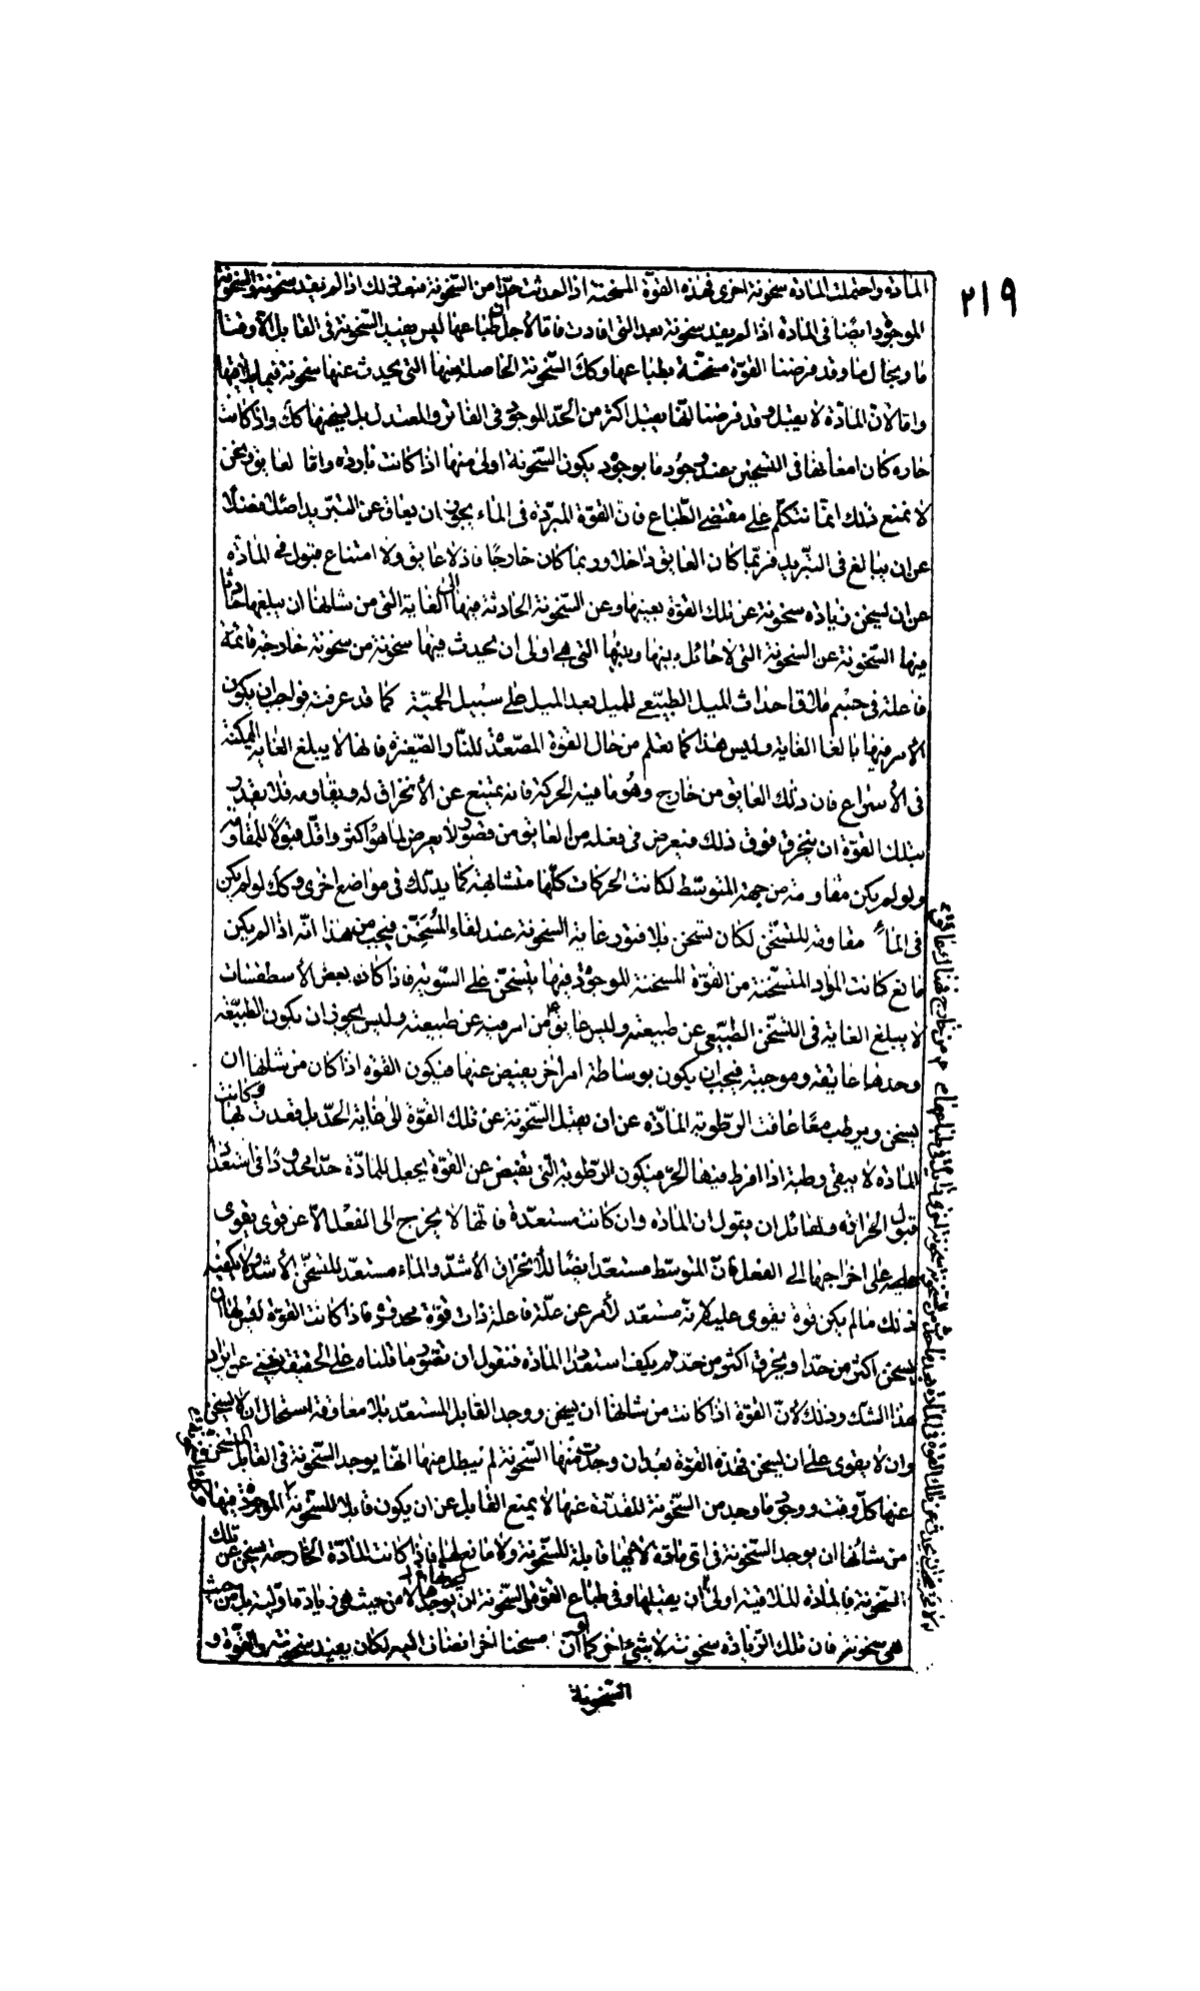 ٢١٩
المادة واحتملت المادة سخونة اخرى فهذه القوة المسخنة اذا احدثت حدّا من السّخونة فبعد ذلك اذا لم يفد سخونة والسخونة
الموجودة ايضا فى المادة اذا لم يفد سخونة بعد التى افادت فاما لاجل ان طباعها ليس يفيد السّخونة فى القابل الا وقتا
ما وبحال ما وقد فرضنا القوّة مسخنة بطباعها وكك السّخونة الحاصلة منها التى يحدث عنها سخونة فيما يلاقيها
واما لان المادّة لا يقبل وقد فرضنا انّها يقبل اكثر من الحدّ الموجود فى الفاتر والمعتدل بل يسخنها كك واذا كانت
حاره كان امعانها فى التسخين عند وجود ما بوجوده يكون السّخونة اولى منها اذا كانت باردة واما لعايق ونحن
لا نمنع ذلك انّما نتكلّم على مقتضى الطّباع فان القوّة المبرّدة فى الماء يجوز ان يعاق عن التبريد اصلا فضلا
عن ان يبالغ فى التبريد فربّما كان العايق داخلا وربما كان خارجًا فاذ لا عايق ولا امتناع قبول فى المادّة
عن ان يسخن زيادة سخونة عن تلك القوّة بعينها وعن السّخونة الحادثة منها الى الغاية التى من شانها ان يبلغها حادثا
منها السّخونة عن السخونة التى لا حائل بينها وبينها التى هى اولى ان يحدث فيها سخونة من سخونة خارجة قائمة
فاعلة فى جسم ملاق احداث الميل الطبيعى للميل بعد الميل على سبيل الحميّة كما قد عرفت فواجب ان يكون
الأمر فيها بالغا الغاية وليس هذا كما نعلم من حال القوة المصعدة للنّار الصّغيرة فانها لا يبلغ الغاية الممكنة
فى الأسراع فان ذلك العايق من خارج وهو ما فيه الحركة فانه يمتنع عن الأنخراق له ويقاومه فلا يقدر
بتلك القوّة ان ينخرق فوق ذلك فيعرض فى فعله من العايق من قصور لا يعرض لما هو اكثر واقل قبولا للمقاومة
ولو لم يكن مقاومة من جهة المتوسّط لكانت الحركات كلّها متشابهة كما يدلك فى مواضع اخرى وكك لو لم يكن
فى الماء مقاومة للتسخّن لكان يسخن بلا فتور غاية السخونة عند لقاء المُسَخِّن فيجب من هذا انّه اذا لم يكن
مانع كانت المواد المتسخّنة من القوّة المسخنة الموجودة فيها يتسخّن على السّوية فاذا كان بعض الأسطقسات
لا يبلغ الغاية فى التسخّن الطبيعى عن طبيعته وليس عايق من امر فيه عن طبيعته وليس يجوز ان يكون الطبيعة
وحدها عايقة وموجبة فيجب ان يكون بوساطة امر اخر يفيض عنها فيكون القوة اذا كان من شانها ان
يسخن ويرطب معًا عاقت الرّطوبة المادّة عن ان يقبل السّخونة عن تلك القوّة الى غاية الحدّ بل فقدت لها وكانت
المادّة لا يبقى رطبة اذا افرط فيها الحرّ فيكون الرّطوبة التى تفيض عن القوّة يجعل للمادّة حدّا محدودًا فى استعداد
قبول الحرارة ولقائل ان يقول ان المادّة وان كانت مستعدّة فانّها لا يخرج الى الفعل الّا عن قوى يقوى
عليه على اخراجها الى الفعل فان المتوسّط مستعدّ ايضًا للأنخراق الأشدّ والماء مستعدّ للتسخّن الأشد ولا يكفيه
ذلك ما لم يكن قوة يقوى عليه لانّه مستعد لأمر عن علّة فاعلة ذات قوّة محدودة فاذا كانت القوّة ليس لها ان
يسخن اكثر من حدّ او يخرق اكثر من حدّ لم يكف استعداد المادّة فنقول ان تقرير ما قلناه على الحقيقة يغنى عن ايراد
هذا الشك وذلك لأنّ القوّة اذا كانت من شانها ان يسخن ووجد القابل المستعدّ بلا معاوقة استحال ان لا يسخن
وان لا يقوى على ان يسخن فهذه القوة بعد ان وجدت منها السّخونة لم يبطل منها انّها يوجد السّخونة فى القابل المتسخّن
عنها كلّ وقت ووجود ما وجد من السّخونة المتقدّمة عنها لا يمنع القابل عن ان يكون قابلا للسّخونة الموجودة فيها
من شانها ان يوجد السّخونة فى اى مادّة لاقيها قابلة للسّخونة ولا مانع لها فاذا كانت المادّة الخارجة يسخن عن تلك
السّخونة فالمادّة الملاقية اولى ان يقبلها وفى طباع القوة والسّخونة ان يوجدها لا من حيث هى زيادة ما وليه بل من حيث
هى سخونة فان تلك الزّيادة سخونة لا بشئ اخر كما لو ان مسخنا اخر انضاف اليه لكان يفيد سخونته والقوّة و
السّخونة